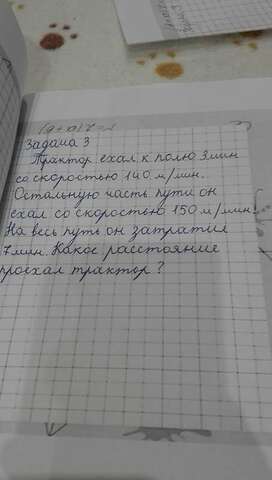 Задача 3
Трактор ехал к полю 3 мин
со скоростью 140 м/мин.
Остальную часть пути он
ехал со скоростью 150 м/мин.
На весь путь он затратил
7 мин. Какое расстояние
проехал трактор?